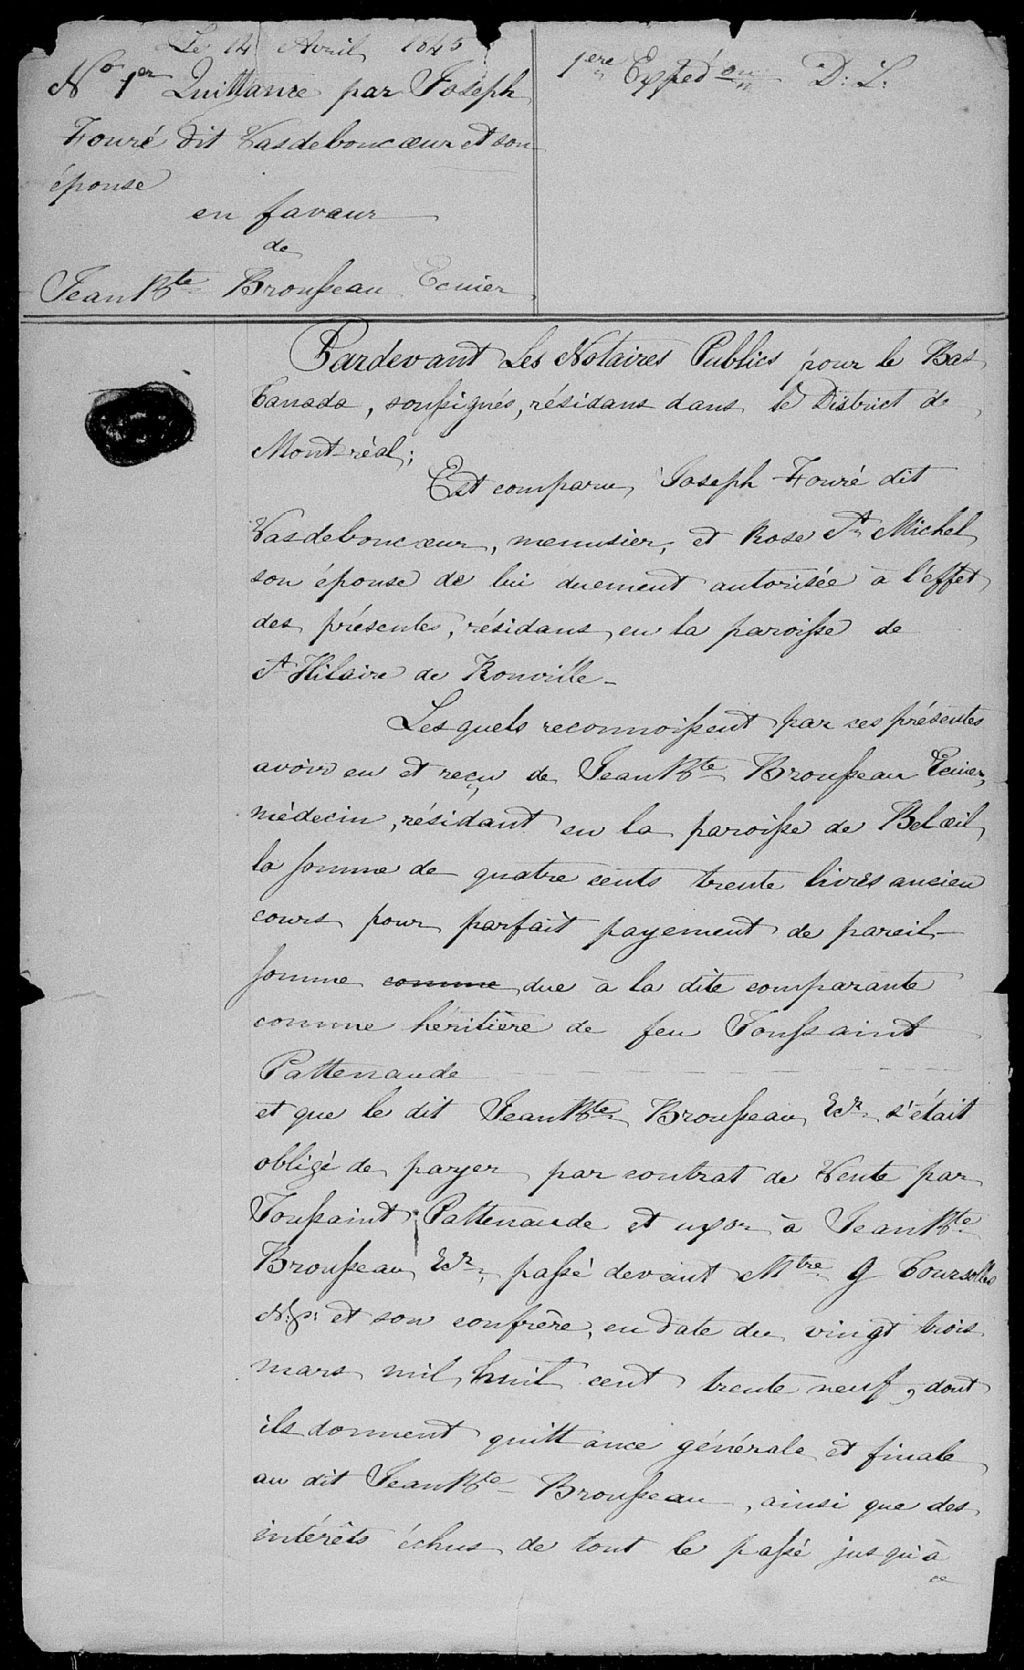 Le 14 Avril 1845
No 1er Quittance par Joseph
Fouré dit Vasdeboncœur et son
épouse
en faveur
de
Jean Bte Brousseau Ecuier
1ere Expédon D. L.
Pardevant Les Notaires Publics pour le Bas
Canada, soussignés, résidans dans le District de
Mont-réal;
Est comparu, Joseph Fouré dit
Vasdeboncœur, menusier, et Rose St Michel
son épouse de lui duement autorisée à l'effet
des présentes, résidans en la paroisse de
St Hilaire de Rouville -
Lesquels reconnoissent par ces présentes
avoir eu et reçu de Jean Bte Brousseau Ecuier,
médecin, résidant en la paroisse de Belœil,
la somme de quatre cents trente livres ancien
cours pour parfait payement de pareil-
somme comme due à la dite comparante
comme héritière de feu Toussaint
Pattenaude
et que le dit Jean Bte Brousseau, Ecr s'était
obligé de payer par contrat de Vente par
Toussaint Pattenaude et uxor à Jean Bte
Brousseau Ecr, passé devant Mtre G Coursolles
N.P. et son confrère, en date du vingt trois
mars mil huit cent trente neuf, dont
ils donnent quittance générale et finale
au dit Jean Bte Brousseau, ainsi que des
intérêts échus de tout le passé jusqu'à
ce